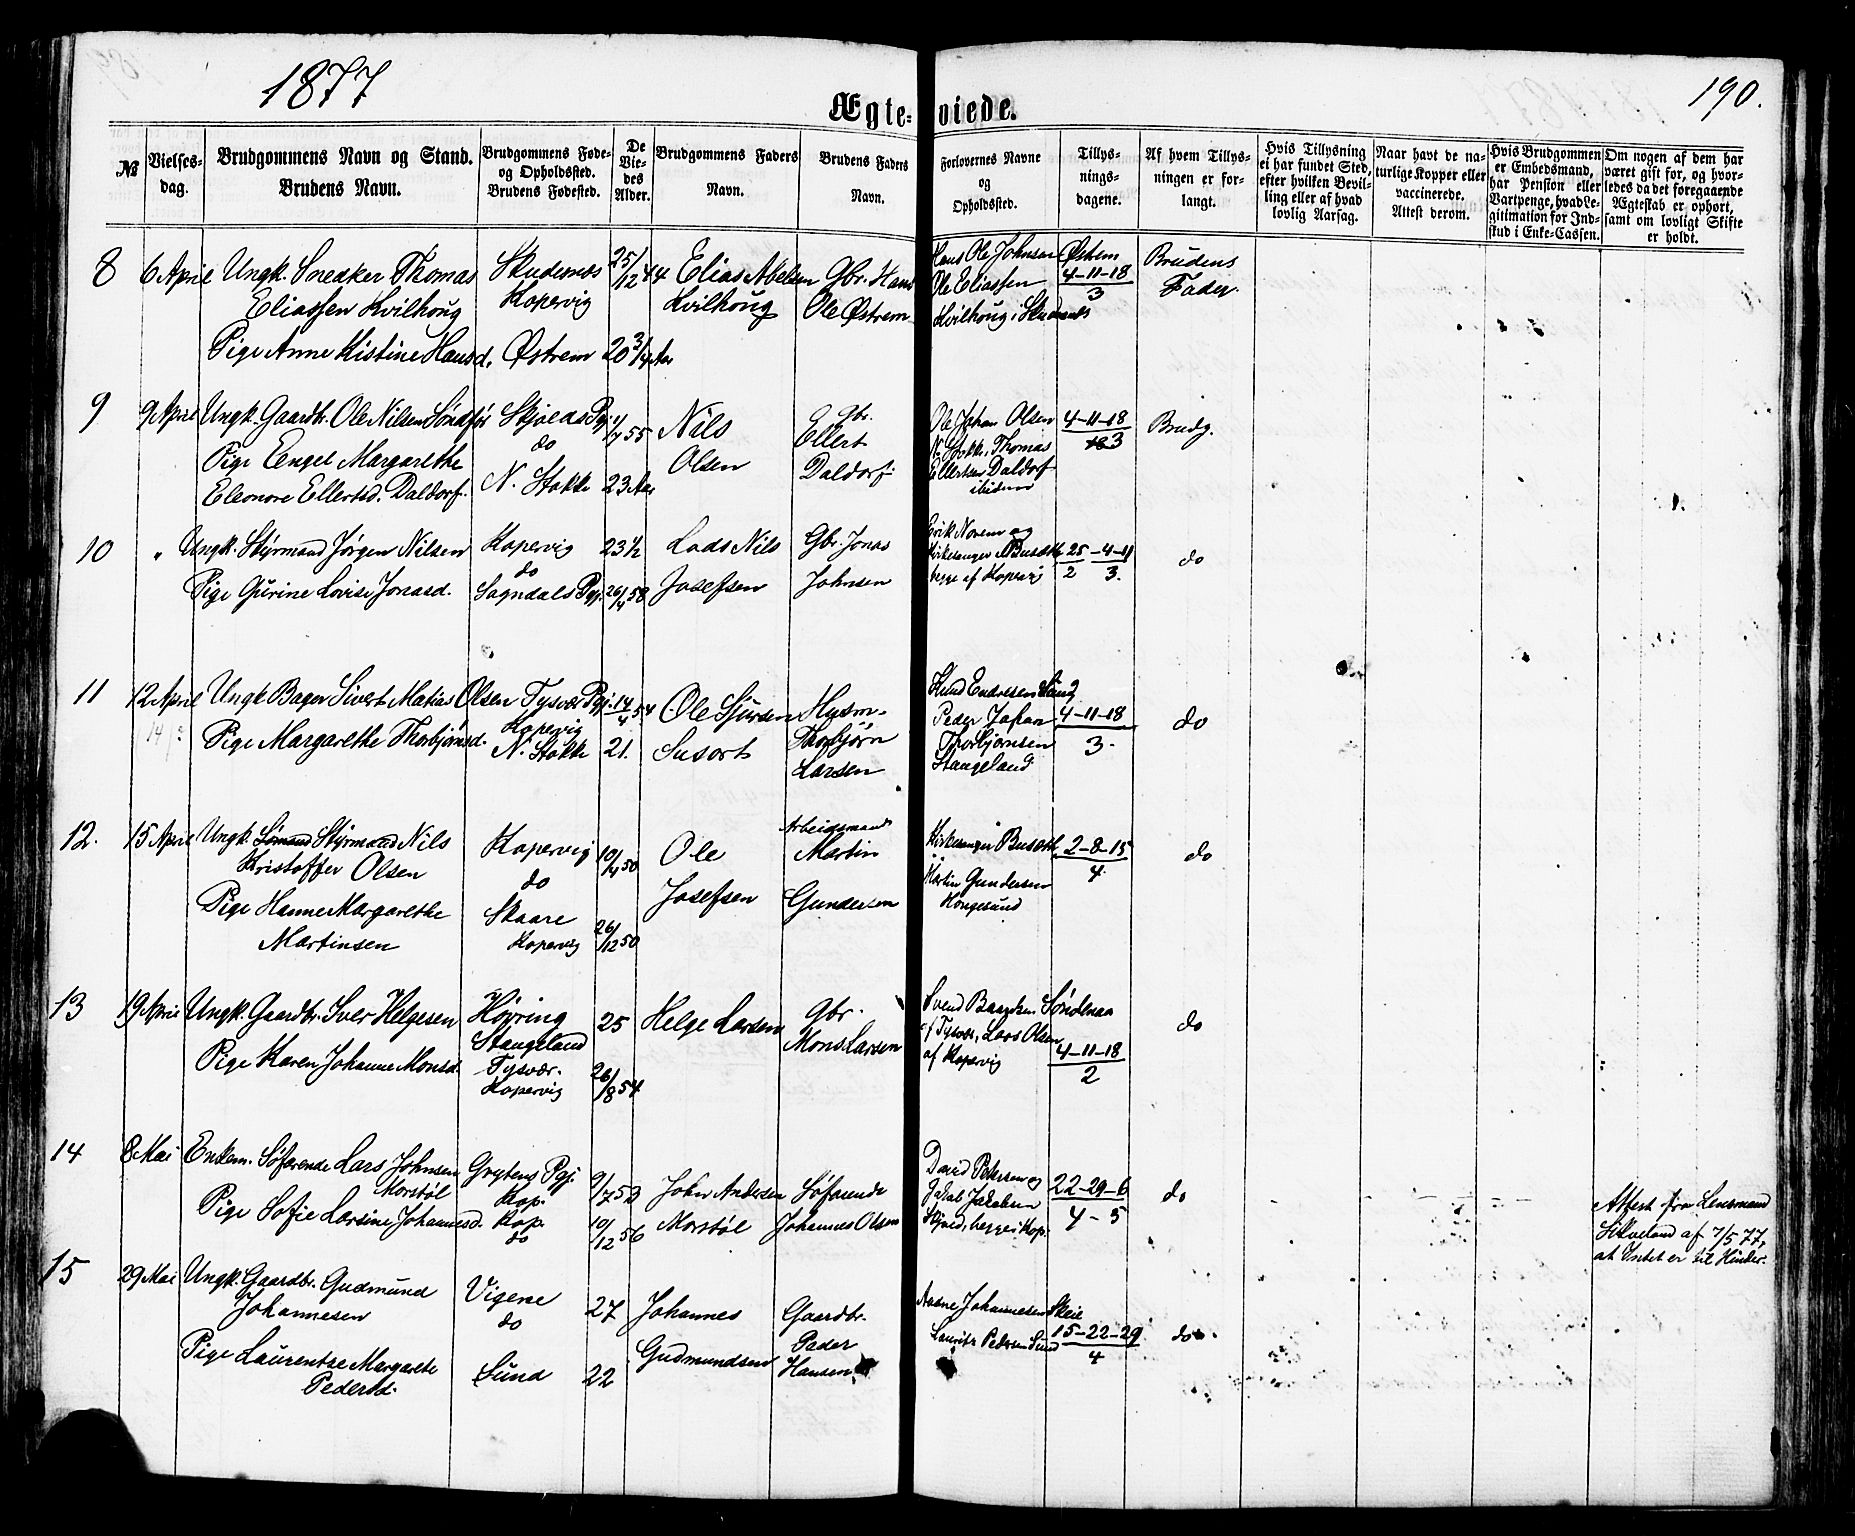 1877
190.
Ægte- viede.
№
Vielses-
dag.
Brudgommens Navn og Stand.
Brudens Navn.
Brudgommens Føde-
og Opholdssted.
Brudens Fødested.
De
Vie-
des
Alder.
Brudgommens Faders
Navn.
Brudens Faders
Navn.
Forlovernes Navne
og
Opholdssted.
Tillys-
nings-
dagene.
Af hvem Tillys-
ningen er for-
langt.
Hvis Tillysning
ei har fundet Sted,
efter hvilken Bevil-
ling eller af hvad
lovlig Aarsag.
Naar havt de na-
turlige Kopper eller
vaccinerede.
Attest derom.
Hvis Brudgommen
er Embedsmand,
har Pension eller
Vartpenge, hvad Le-
gitimation for Ind-
skud i Enke-Cassen.
Om nogen af dem har
været gift før, og hvor-
ledes da det foregaaende
Ægteskab er ophørt,
samt om lovligt Skifte
er holdt.
8 6 April Ungk. Snedker Thomas Skudesnæs 25/12 44 Elias Abelsen Gbr. Hans Hans Ole Johnsen Østrem 4-11-18 Brudens
Eliassen Kvilhoug Kopervig Kvilhoug Ole Østrem Ole Eliassen 3 Fader.
Kvilhoug i Skudesnæs
Pige Anne Kistine Hansd. Østrem 20 3/4 Aar
9 9 April Ungk. Gaardbr. Ole Nilsen Søndfør Skjolds Pgj. 1/7 55 Nils Gbr. Ole Johan Olsen 4-11-18 Brudg.
do Ellert N. Stokke, Thomas 3
Pige Eengel Margarethe Olsen Daldorf Ellertsen Daldorf
Eleonore Ellertsd. Daldorf. N. Stokke 23 Aar ibidem
10 " Ungk. Styrmand Jørgen Nilsen Kopervig 23 1/2 Lods Nils Gbr. Jonas Erik Norem og 25-4-11 do
do Kirkesanger Busæth 2 3.
Pige Gurine Lovise Jonasd. Sogndals Pgj. 26/4 58 Josefsen Johnsen begge af Kopervig
11 12 April Ungk Bager Sivert Matias Olsen Tysvær Pgj. 14/4 54 Ole Sjursen Husm. Knud Endresen Stang 4-11-18 do
14 Kopervig Thorbjørn Peder Johan 3.
Pige Margarethe Thorbjørnsd. N. Stokke 21. Susort Larsen Thorbjørnsen
Stangeland
12. 15 April Ungk. Sømand Styrmand Nils Kopervig 10/4 50 Ole Arbeidsmand Kirkesanger Busæth 2-8-15 do
Kristoffer Olsen do Martin 4.
Pige Hanne Margarethe Skaare 26/12 50 Josefsen Gundersen Martin Gundersen
Martinsen Kopervig Kongesund
13 19 April Ungk. Gaardbr. Iver Helgesen Høvring 25 Helge Larsen Gbr. Svend Baardsen Søndenaa do
Stangeland Mons Larsen af Tysvær, Lars Olsen 4-11-18
Pige Karen Johanne Monsd. Tysvær. 26/8 54 af Kopervig 2
Kopervig
14 8 Mai Enkem. Søfarende Lars Johnsen Grytens Pgj. 9/7 53 John Andersen Søfarende David Petersen og 22-29-6 do Attest fra Lensmand
Morstøl Kop. Jakob Jakobsen 4-5
Pige Sofie Larsine Johannesd. Kop. 10/12 56 Morstøl Johannes Olsen begge i Kop. af 7/5 77,
do at Intet er til Hinder.
15 29 Mai Ungk. Gaardbr. Gudmund Vigene 27 Johannes Gaardbr. Aadne Johannesen Skeie 15-22-29 do.
Johannesen do Peder Laurits Pedersen Sund 4
Pige Laurentse Margarete Sund 22 Gudmundsen Hansen
Pedersd.